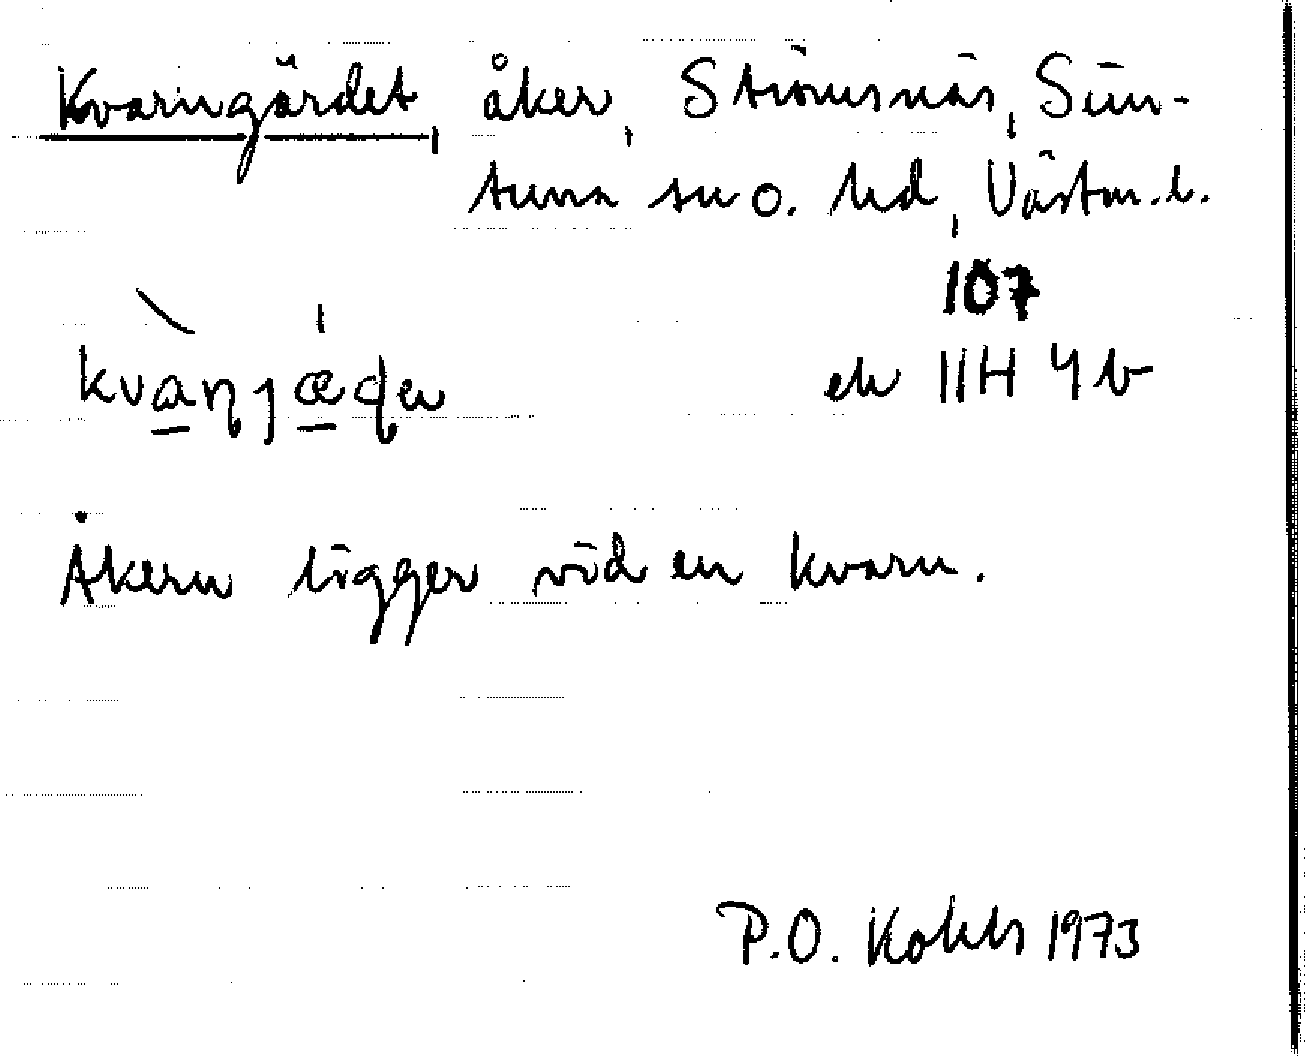 Kvarngärdet, åker, Strömsnäs, Sim-
tuna sn o. hd, Västm. l.
107
kvaṇjæḍeṛ ek 11H 4b
Åkern ligger vid en kvarn.
P.O. Kohls 1973